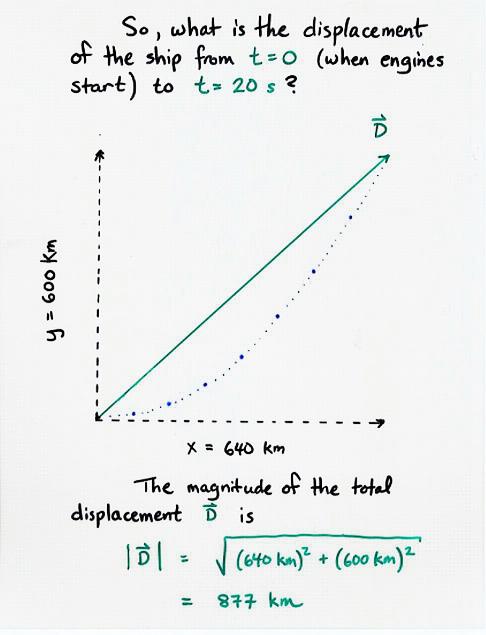 So, what is the displacement
of the ship from t=0 (when engines
start) to t= 20 s ?
D⃗
y = 600 km
x = 640 km
The magnitude of the total
displacement D⃗ is
|D⃗| = √(640 km)² + (600 km)²
= 877 km